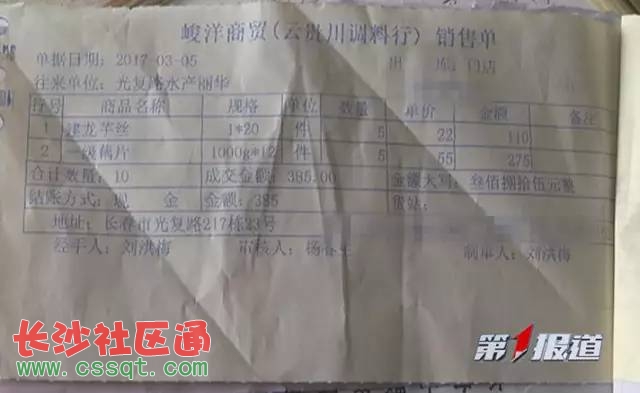 峻洋商贸(云贵川调料行) 销售单
单据日期: 2017-03-05 出 库: 门店
往来单位: 光复路水产丽华
序号 商品名称 规格 单位 数量 单价 金额 备注
1 建龙芋丝 1*20 件 5 22 110
2 一级藕片 1000g*12 件 5 55 275
合计数量: 10 成交金额: 385.00 金额大写: 叁佰捌拾伍元整
结账方式: 现 金 金额: 385 货站:
地址: 长春市光复路217栋23号
经手人: 刘洪梅 审核人: 杨春 制单人: 刘洪梅
长沙社区通
www.cssqt.com
第1报道